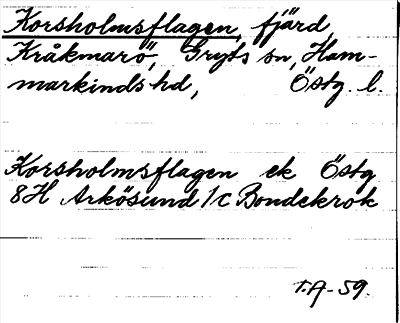 Korsholmsflagen, fjärd,
Kråkmarö, Gryts sn, Ham-
markinds hd, Östg. l.
Korsholmsflagen ek Östg
8H Arkösund 1c Bondekrok
T.A-59.